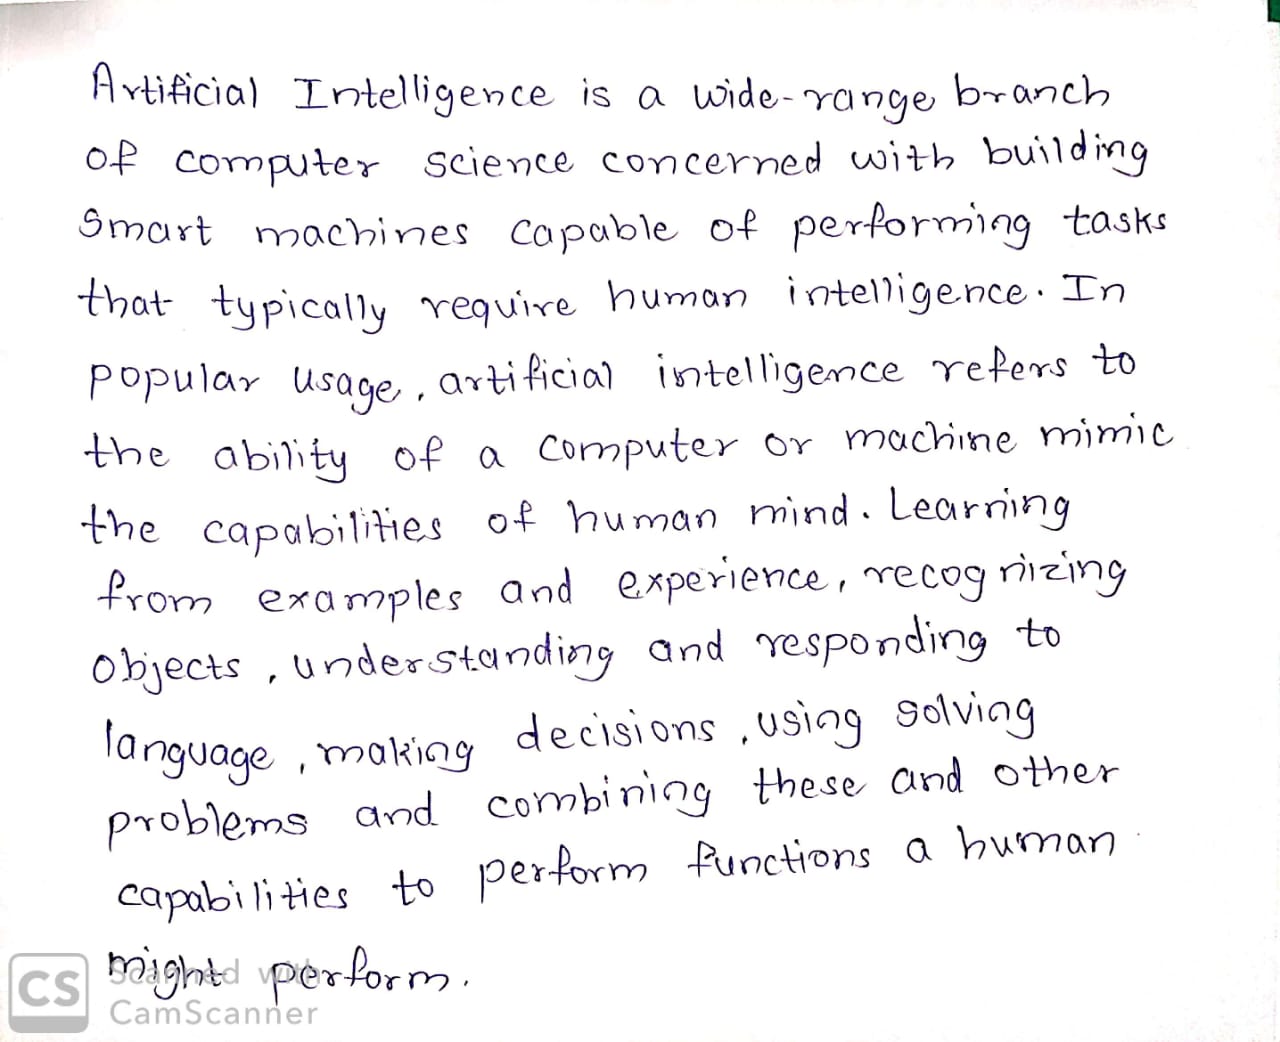 Artificial Intelligence is a wide-range branch
of computer science concerned with building
Smart machines capable of performing tasks
that typically require human intelligence. In
popular usage, artificial intelligence refers to
the ability of a computer or machine mimic
the capabilities of human mind. Learning
from examples and experience, recognizing
objects, understanding and responding to
language, making decisions, using solving
problems and combining these and other
capabilities to perform functions a human
might perform.
CS Scanned with
CamScanner